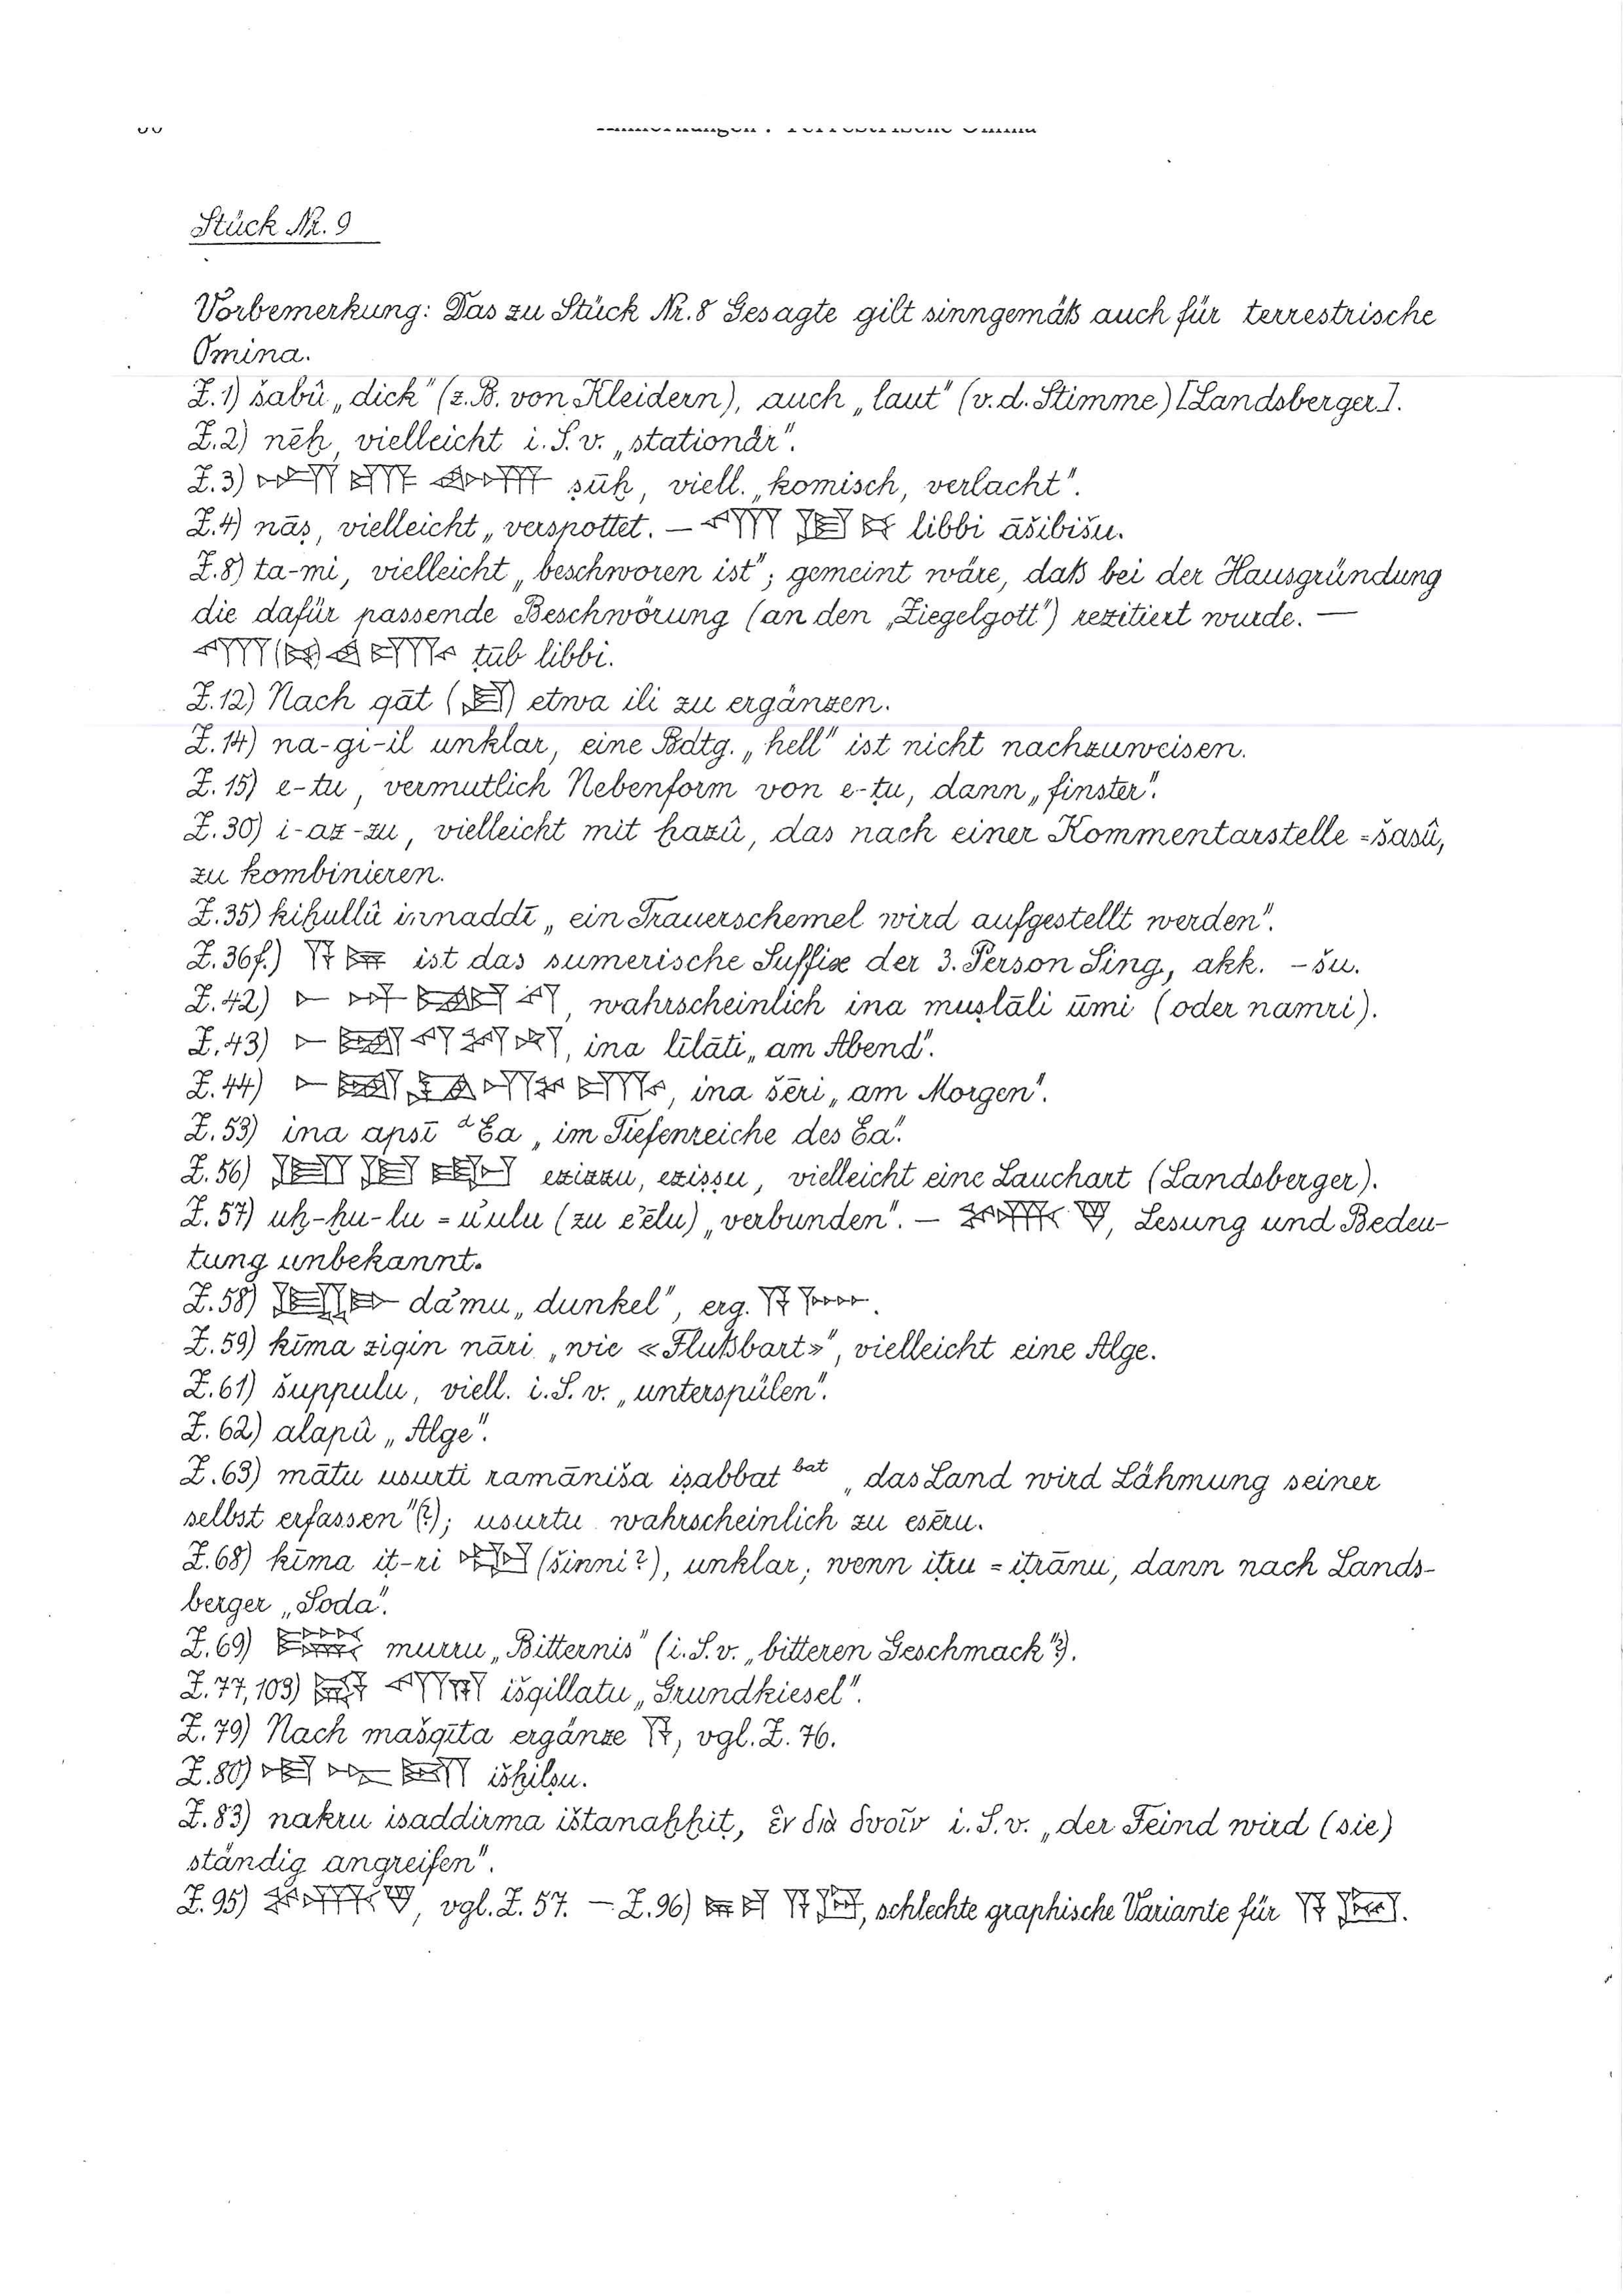 Anmerkungen : Terrestrische Omina
Stück Nr. 9
Vorbemerkung: Das zu Stück Nr. 8 Gesagte gilt sinngemäß auch für terrestrische
Omina.
Z.1) šabû „dick" (z.B. von Kleidern), auch „laut" (v.d. Stimme) [Landsberger].
Z.2) nēḫ vielleicht i.S.v. „stationär".
Z.3) ṣūḫ, viell. „komisch, verlacht".
Z.4) nāṣ, vielleicht „verspottet. — libbi āšibišu.
Z.8) ta-mi, vielleicht „beschworen ist"; gemeint wäre, daß bei der Hausgründung
die dafür passende Beschwörung (an den „Ziegelgott") rezitiert wurde. —
ṭūb libbi.
Z.12) Nach qāt ( ) etwa ili zu ergänzen.
Z.14) na-gi-il unklar, eine Bdtg. „hell" ist nicht nachzuweisen.
Z.15) e-tu, vermutlich Nebenform von e-ṭu, dann „finster".
Z.30) i-az-zu, vielleicht mit ḫazû, das nach einer Kommentarstelle = šasû,
zu kombinieren.
Z.35) kiḫullû innaddī „ein Trauerschemel wird aufgestellt werden".
Z.36f.) ist das sumerische Suffix der 3. Person Sing., akk. -šu.
Z.42) , wahrscheinlich ina muṣlāli ūmi (oder namri).
Z.43) , ina līlāti „am Abend".
Z.44) , ina šēri „am Morgen".
Z.53) ina apsī ᵈEa „im Tiefenreiche des Ea".
Z.56) ezizzu, eziṣṣu, vielleicht eine Lauchart (Landsberger).
Z.57) uḫ-ḫu-lu = u'ulu (zu e'ēlu) „verbunden". — , Lesung und Bedeu-
tung unbekannt.
Z.58) da'mu „dunkel", erg. .
Z.59) kīma ziqin nāri „wie «Flußbart»", vielleicht eine Alge.
Z.61) šuppulu, viell. i.S.v. „unterspülen".
Z.62) alapû „Alge".
Z.63) mātu usurti ramāniša iṣabbat ᵇᵃᵗ „das Land wird Lähmung seiner
selbst erfassen"(?); usurtu wahrscheinlich zu esēru.
Z.68) kīma iṭ-ri (šinni?), unklar; wenn iṭru = iṭrānu, dann nach Lands-
berger „Soda".
Z.69) murru „Bitternis" (i.S.v. „bitteren Geschmack"?).
Z.77, 103) išqillatu „Grundkiesel".
Z.79) Nach mašqīta ergänze , vgl. Z.76.
Z.80) išḫilṣu.
Z.83) nakru isaddirma ištanaḫḫiṭ, ἓν διὰ δυοῖν i.S.v. „der Feind wird (sie)
ständig angreifen".
Z.95) , vgl. Z.57. — Z.96) , schlechte graphische Variante für .